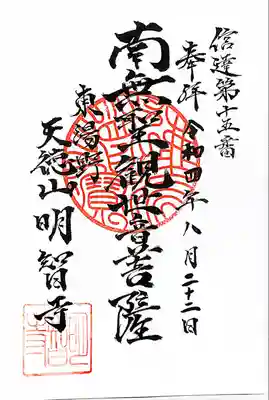 信達第十五番
奉拝 令和四年八月二十二日
南無聖観世音菩薩
東湯野
天徳山明智寺